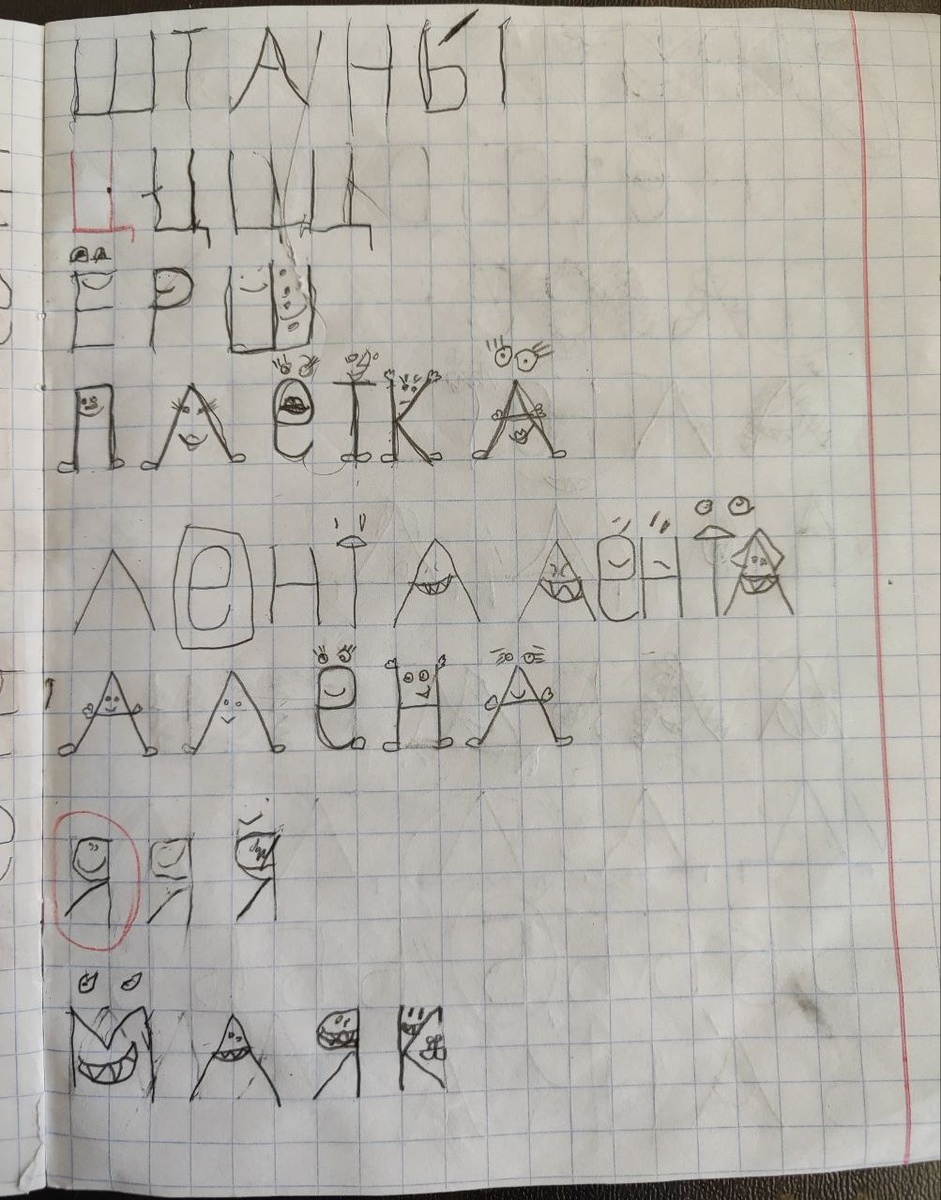 ШТАНЫ
Ц Ц Щ
Е Р Ш
П Л е Т К А
Л е Н Т А Л е Н Т А
А Л Ё Н А
Я Я Я
М А Я К